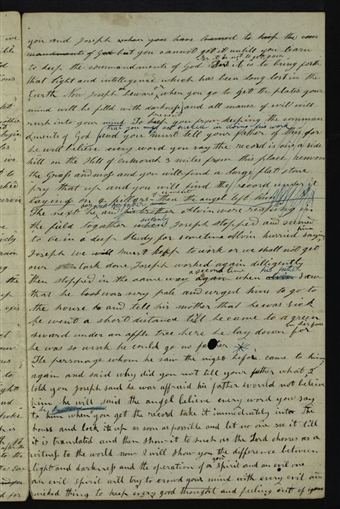 you and Joseph when you have learned to keep the com
mandments of God but you cannot get it untill you learn
to keep the commandments of God For it is not to get gain
But it is to bring forth
that light and intelligence which has been long lost in the
Earth Now Joseph beware when you go to get the plates your
mind will be filld with darkness and all maner of evil will
rush into your mind To prevent you from keeping the comman
dments of God that you may not succeed in doing his work and you must tell your father of this for
he will believe every word you say the record is on a side
hill on the Hill of Cumorah 3 miles from this place remove
the Grass and moss and you will find a large flat stone
pry that up and you will find the record under it
laying on 4 pillars of cement then the angel left him
The next he and his Father and Alvin were reaping in
the field together when suddenly Joseph stopped and seemed
to be in a deep study for sometime Alvin hurried him saying
Joseph we must keep to work or we shall not get
our task done Joseph worked again dilligently
then stopped in the same way a second time when his father saw
that he look was very pale and urged him to go to
the house & and tell his mother that he was sick
he went a short distance till he came to a green
sward under an apple tree here he lay down on his face for
he was so weak he could go no farther
The personage whom he saw the night before came to him
again and said why did you not tell your father what I
told you Joseph said he was afraid his father would not believ
him he will said the angel believe every word you say
to him when you get the record take it immediately into the
house and lock it up as soon as possible and let no one see it till
it is translated and then show it to such as the Lord chooses as a
witness to the world now I will show you the difference between
light and darkness and the operation of a good spirit and an evil one
an evil spirit will try to crowd your mind with every evil an
wicked thing to keep every good thought and feeling out of your